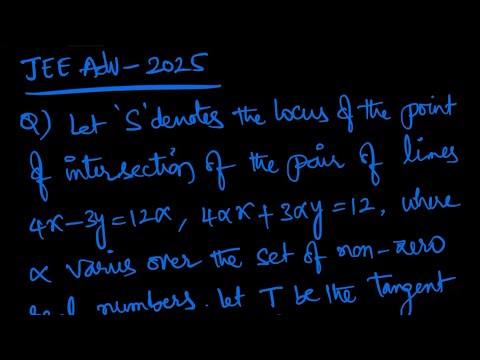 JEE Adv - 2025
Q) Let 'S' denotes the locus of the point
of intersection of the pair of lines
4x-3y=12α, 4αx+3αy=12, where
α varies over the set of non-zero
real numbers. Let T be the tangent